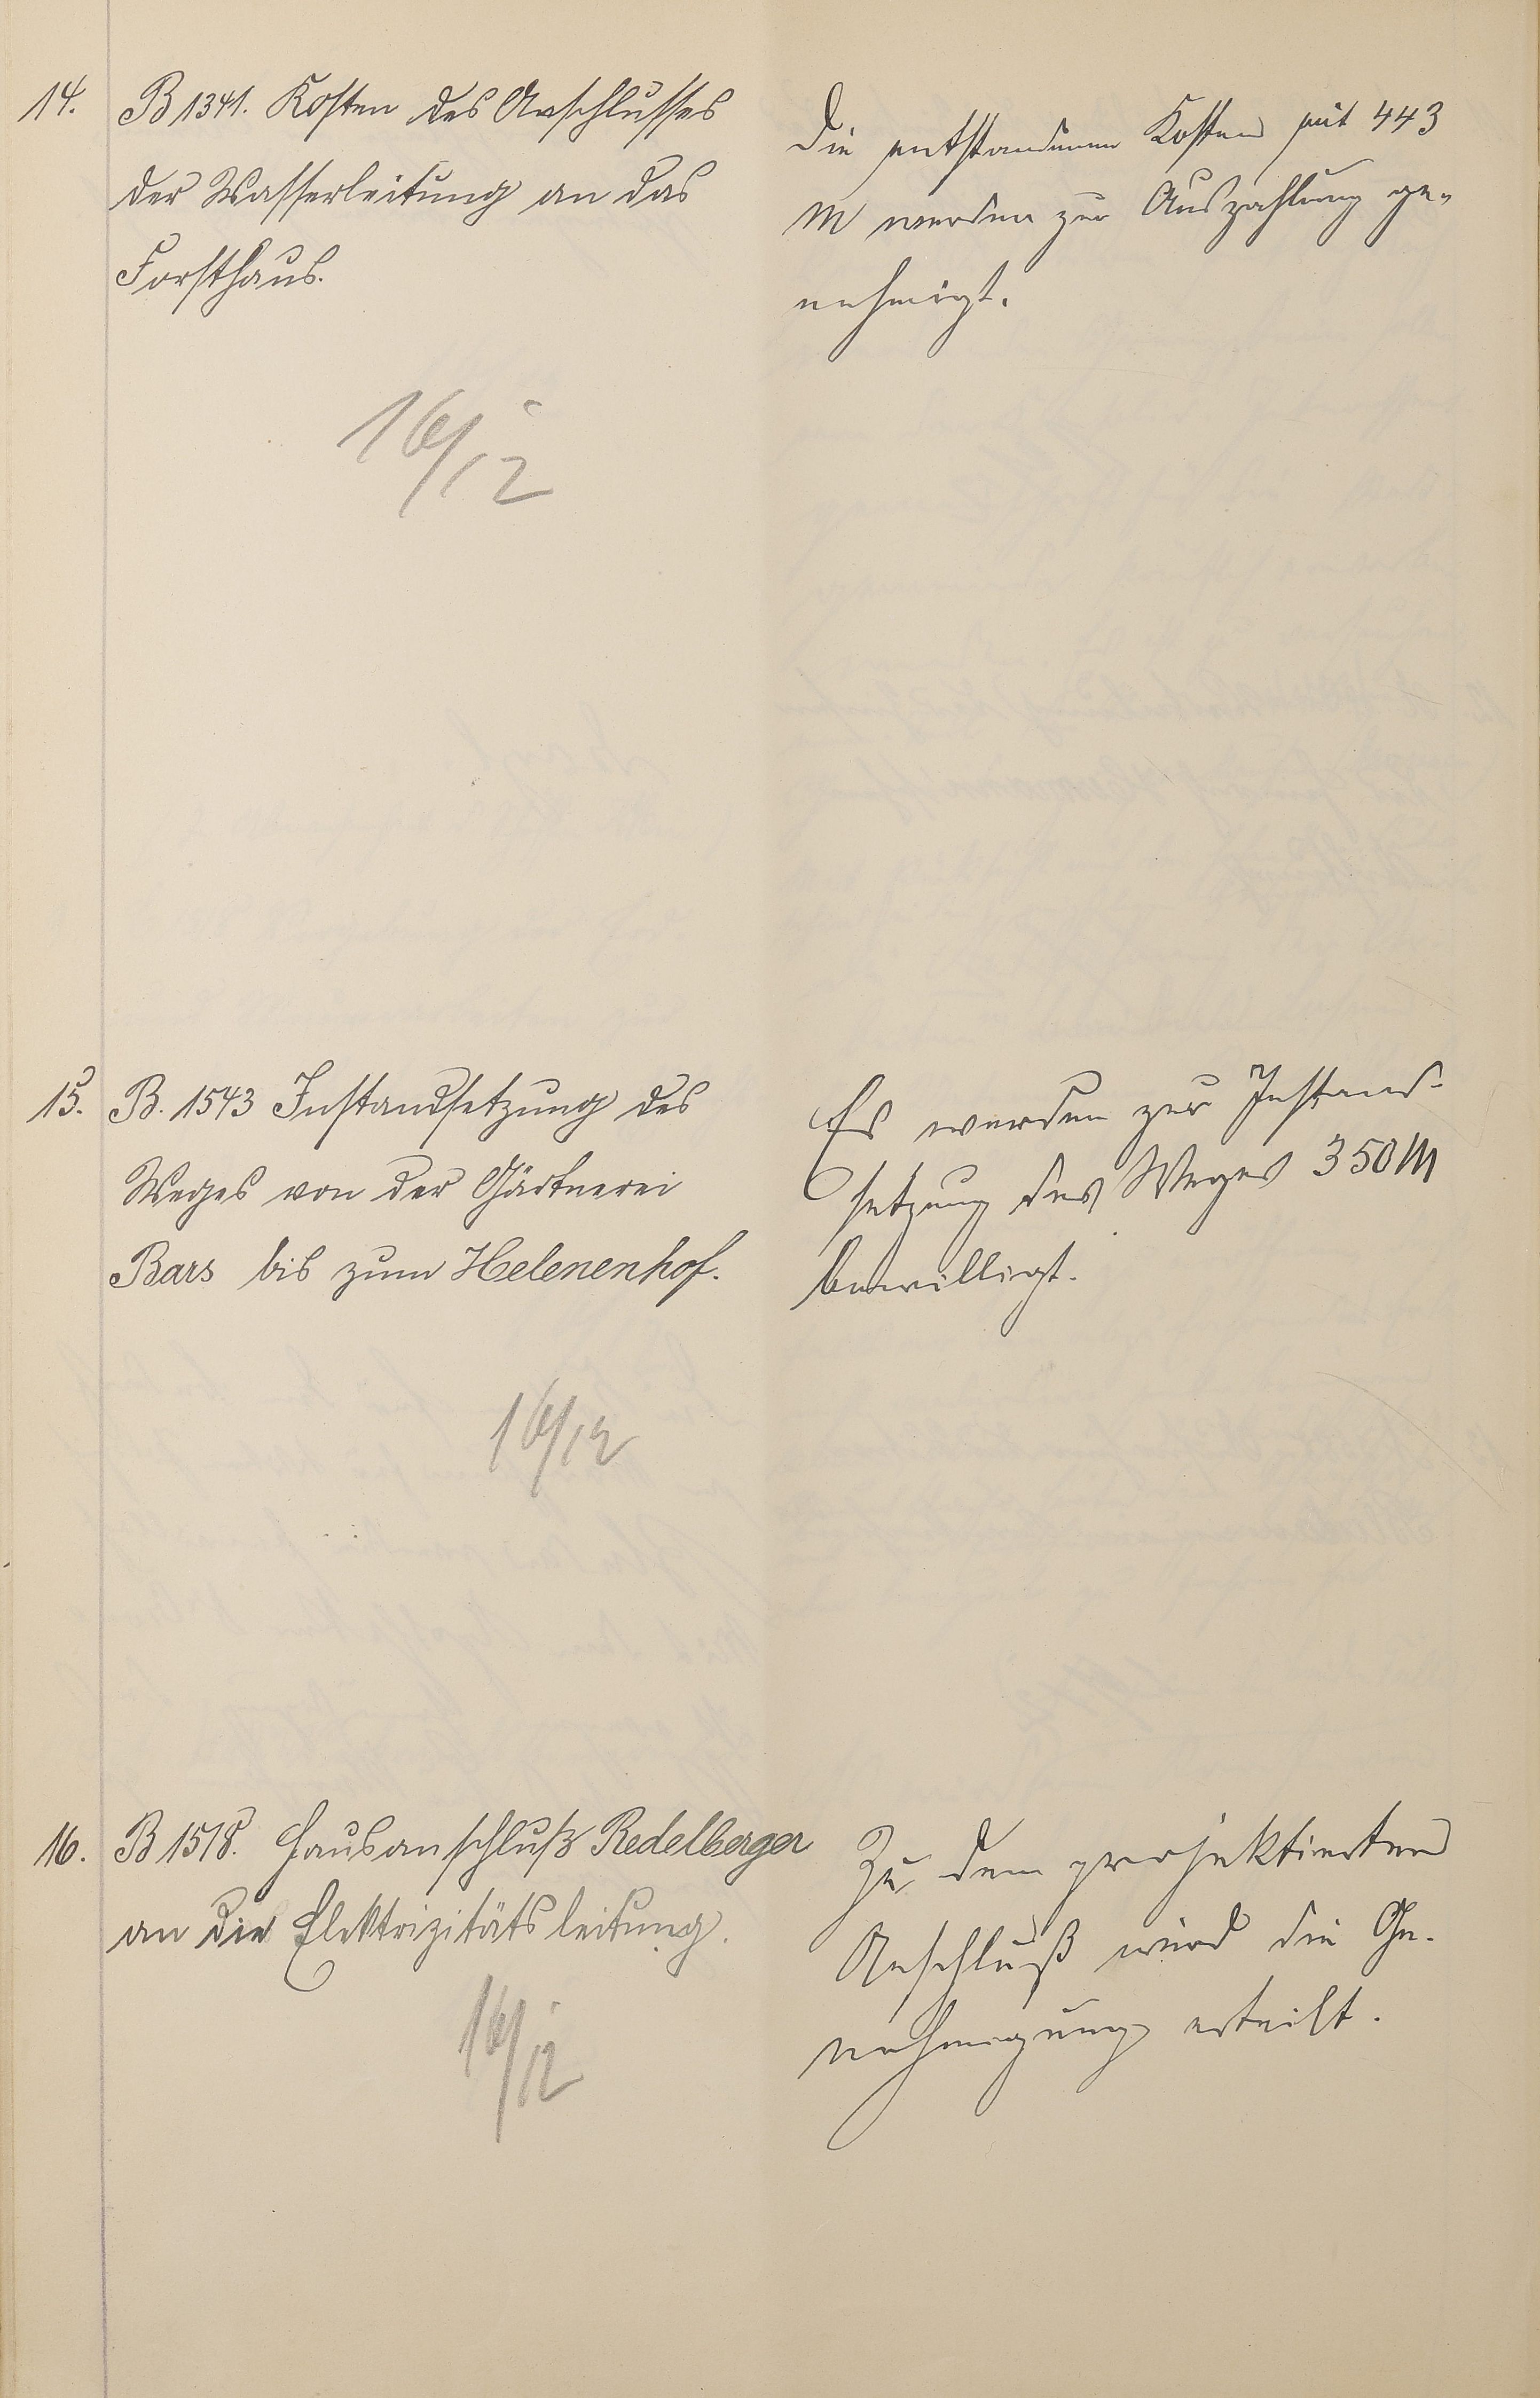 14.
B 1341. Kosten des Anschlusses
der Wasserleitung an das
Forsthaus.
16/12
Die entstandenen Kosten mit 443
M werden zur Auszahlung ge-
nehmigt.
15.
B. 1543 Instandsetzung des
Weges von der Gärtnerei
Bars bis zum Helenenhof.
16/12
Es werden zur Instand-
setzung des Weges 350 M
bewilligt.
16.
B 1518. Hausanschluß Redelberger
an die Elektrizitätsleitung.
16/12
Zu dem projektierten
Anschluß wird die Ge-
nehmigung erteilt.